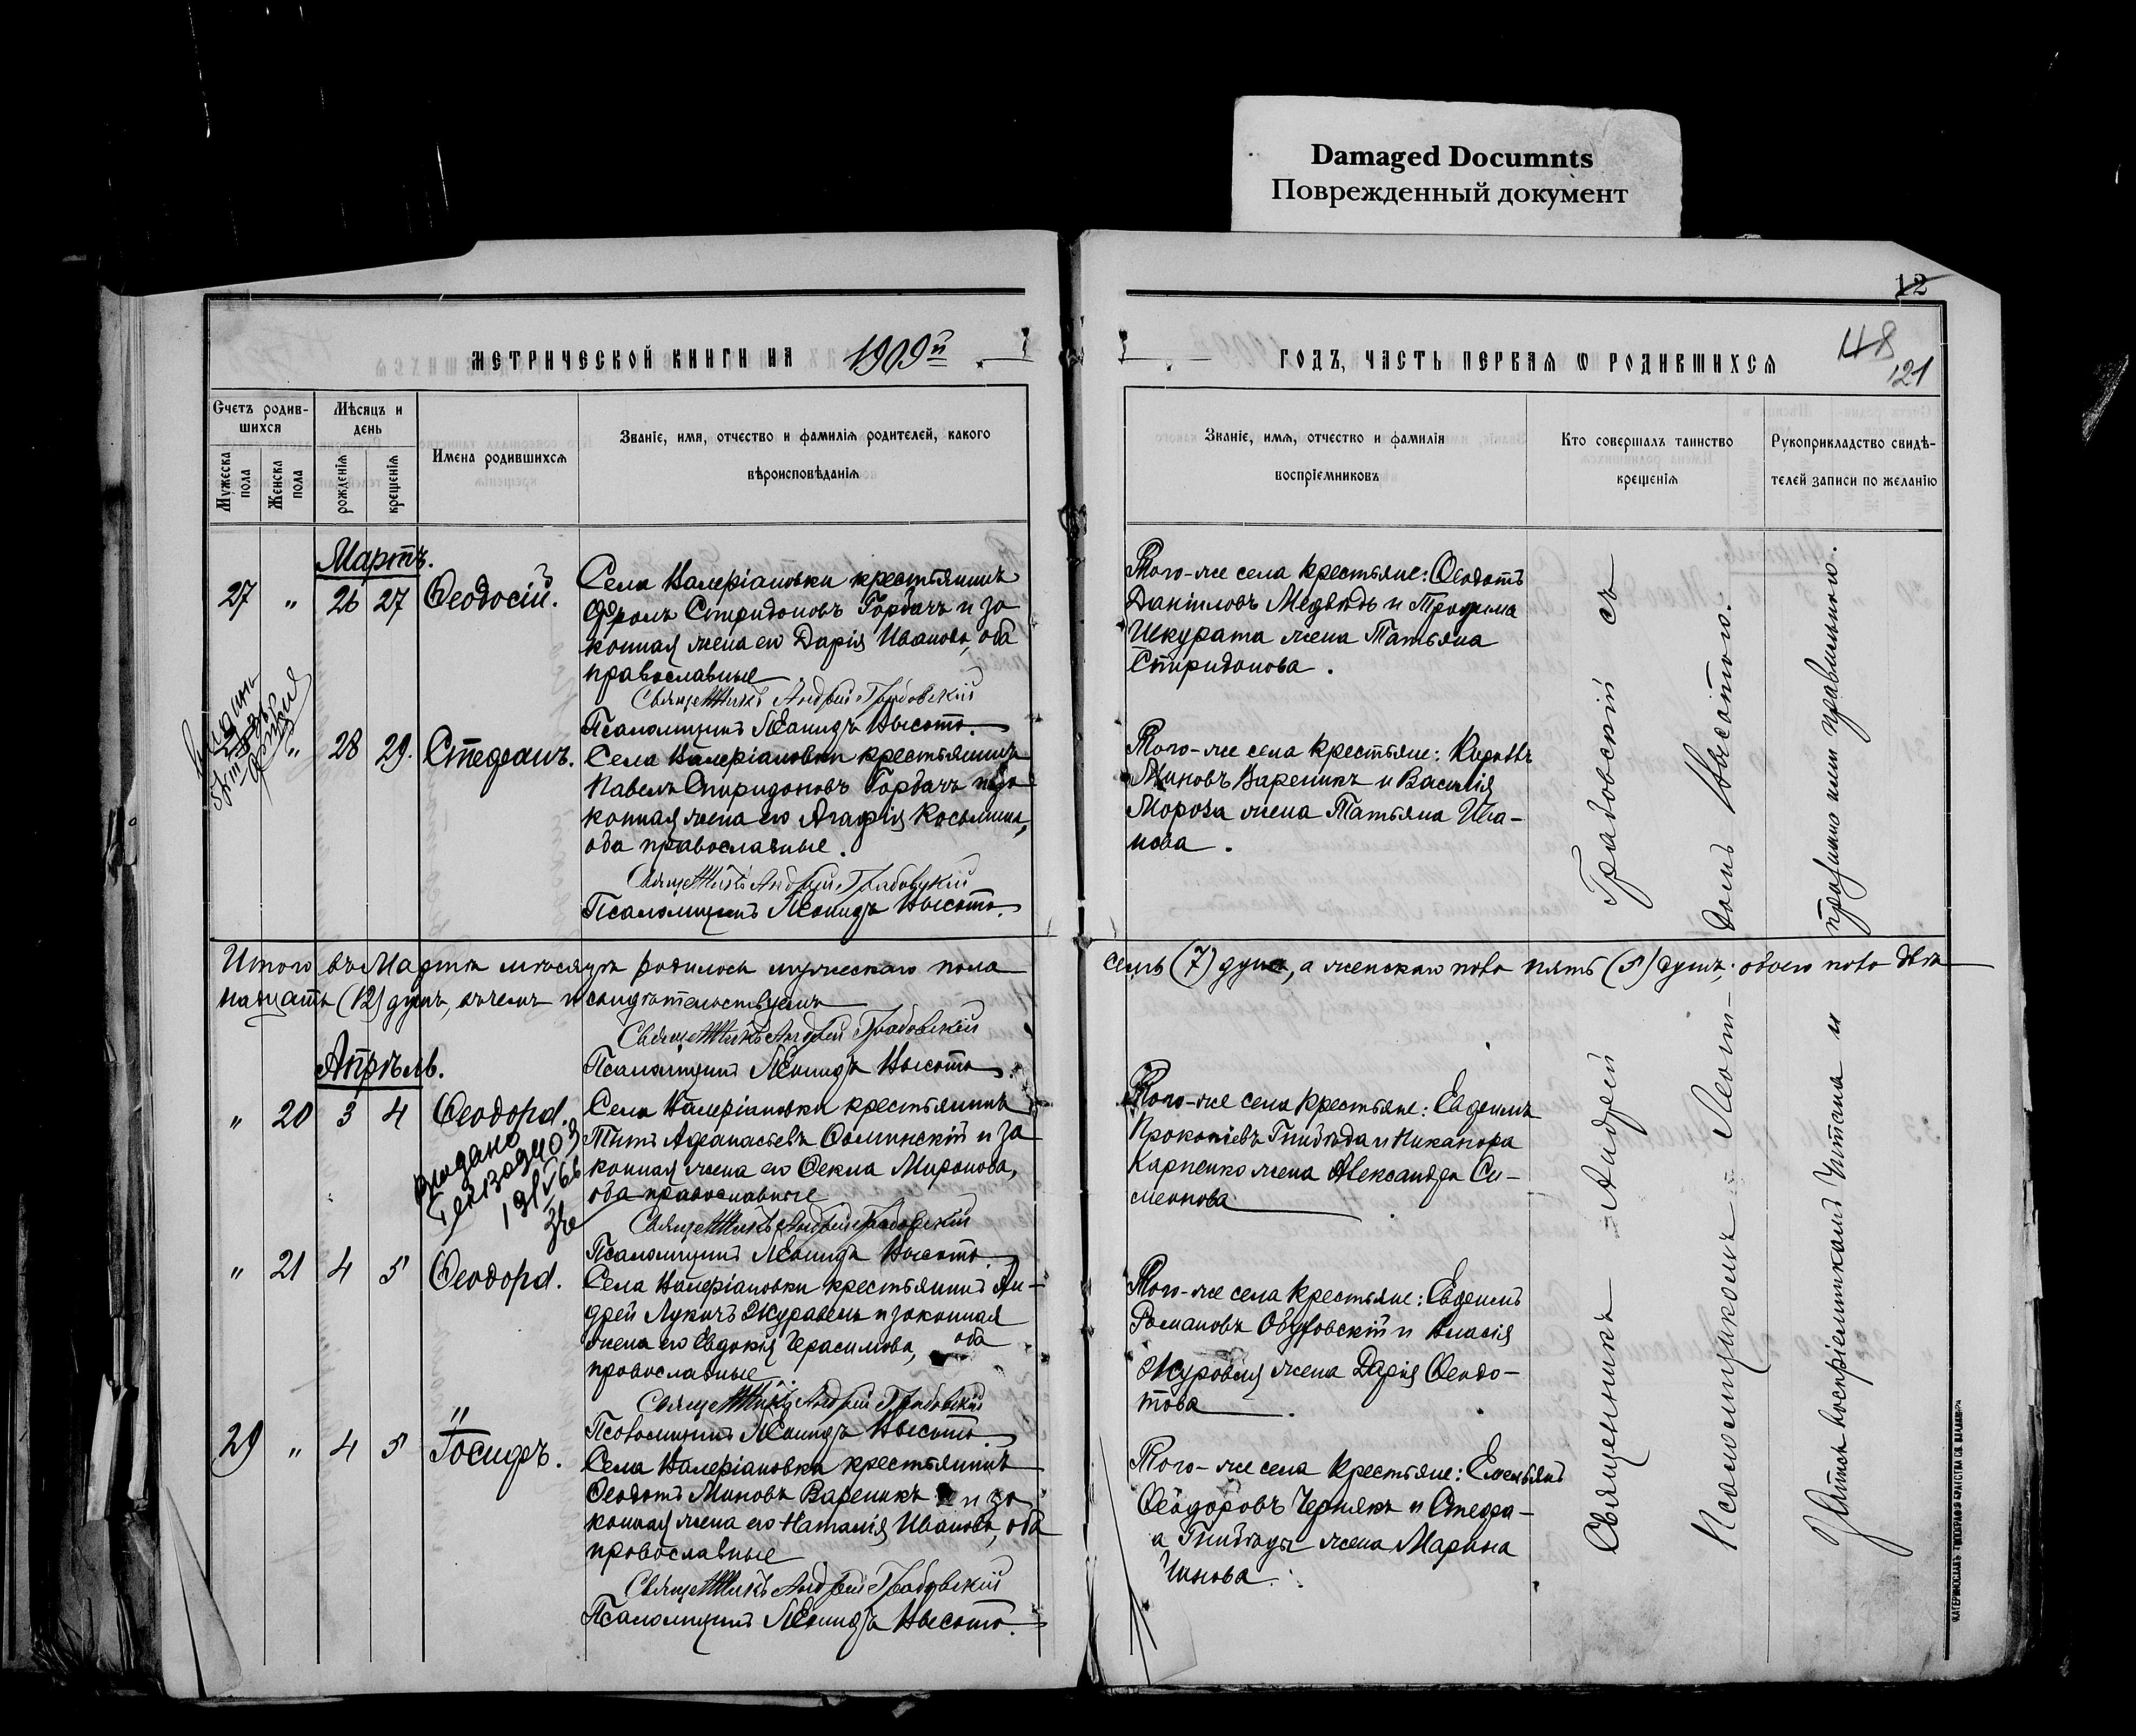 Damaged Documnts
Поврежденный документ
12
48
121
МЕТРИЧЕСКОЙ КНИГИ НА 1909й
ГОДЪ, ЧАСТЬ ПЕРВАЯ Ѡ РОДИВШИХСЯ
Счетъ родив-
шихся
Мужеска
пола
Женска
пола
Мѣсяцъ и
день
рожденія
крещенія
Имена родившихся
Званіе, имя, отчество и фамилія родителей, какого
вѣроисповѣданія
Званіе, имя, отчество и фамилія
воспріемниковъ
Кто совершалъ таинство
крещенія
Рукоприкладство свидѣ-
телей записи по желанію
Мартъ.
27 " 26 27 Ѳеодосій.
Села Валеріановки крестьянинъ
Фролъ Спиридоновъ Горбачъ и за
конная жена его Дарія Иванова, оба
православные
Священникъ Андрей Грабовскій
Псаломщикъ Леонидъ Высота.
Того-же села крестьяне: Ѳеодотъ
Даніиловъ Медвѣдь и Трофима
Шкурата жена Татьяна
Спиридонова.
" 28 29. Стефанъ.
Села Валеріановки крестьянинъ
Павелъ Спиридоновъ Горбачъ и за
конная жена его Агафія Косьмина,
оба православные.
Священникъ Андрей Грабовскій
Псаломщикъ Леонидъ Высота.
Того-же села крестьяне:
Миновъ Вареникъ и Василія
Мороза жена Татьяна Ива-
нова.
Итого въ Мартѣ мѣсяцѣ родилось мужескаго пола
семь (7) душъ, а женскаго пола пять (5) душъ, обоего пола двѣ
надцать (12) душъ, въ чемъ и свидѣтельствуемъ
Священникъ Андрей Грабовскій
Псаломщикъ Леонидъ Высота.
Апрѣль.
" 20 3 4 Ѳеодора.
Выдано
Села Валеріановки крестьянинъ
Титъ Аѳанасьевъ и за
конная жена его Ѳекла Миронова,
оба православные
Священникъ Андрей Грабовскій
Псаломщикъ Леонидъ Высота.
Того-же села крестьяне: Евфимъ
Прокопіевъ Гнибѣда и Никанора
Карпенко жена Александра Си-
меонова
" 21 4 5 Ѳеодора.
Села Валеріановки крестьянинъ Ан-
дрей Лукичъ Журавель и законная
жена его Евдокія Герасимова, оба
православные.
Священникъ Андрей Грабовскій
Псаломщикъ Леонидъ Высота.
Того-же села крестьяне: Евфимъ
Романовъ Обуховскій и Власія
Журавля жена Дарія Ѳеодо-
това
29 " 4 5 Іосифъ.
Села Валеріановки крестьянинъ
Ѳеодотъ Миновъ Вареникъ и за
конная жена его Наталія Иванова, оба
православные
Священникъ Андрей Грабовскій
Псаломщикъ Леонидъ Высота.
Того-же села крестьяне: Емельянъ
Ѳеодоровъ Чернякъ и Стефа-
а Гнибѣды жена Марина
Священникъ Андрей Грабовскій съ
Псаломщикомъ Леони-
домъ Высотою.
Запись воспріемникамъ читана и
признана ими правильною.